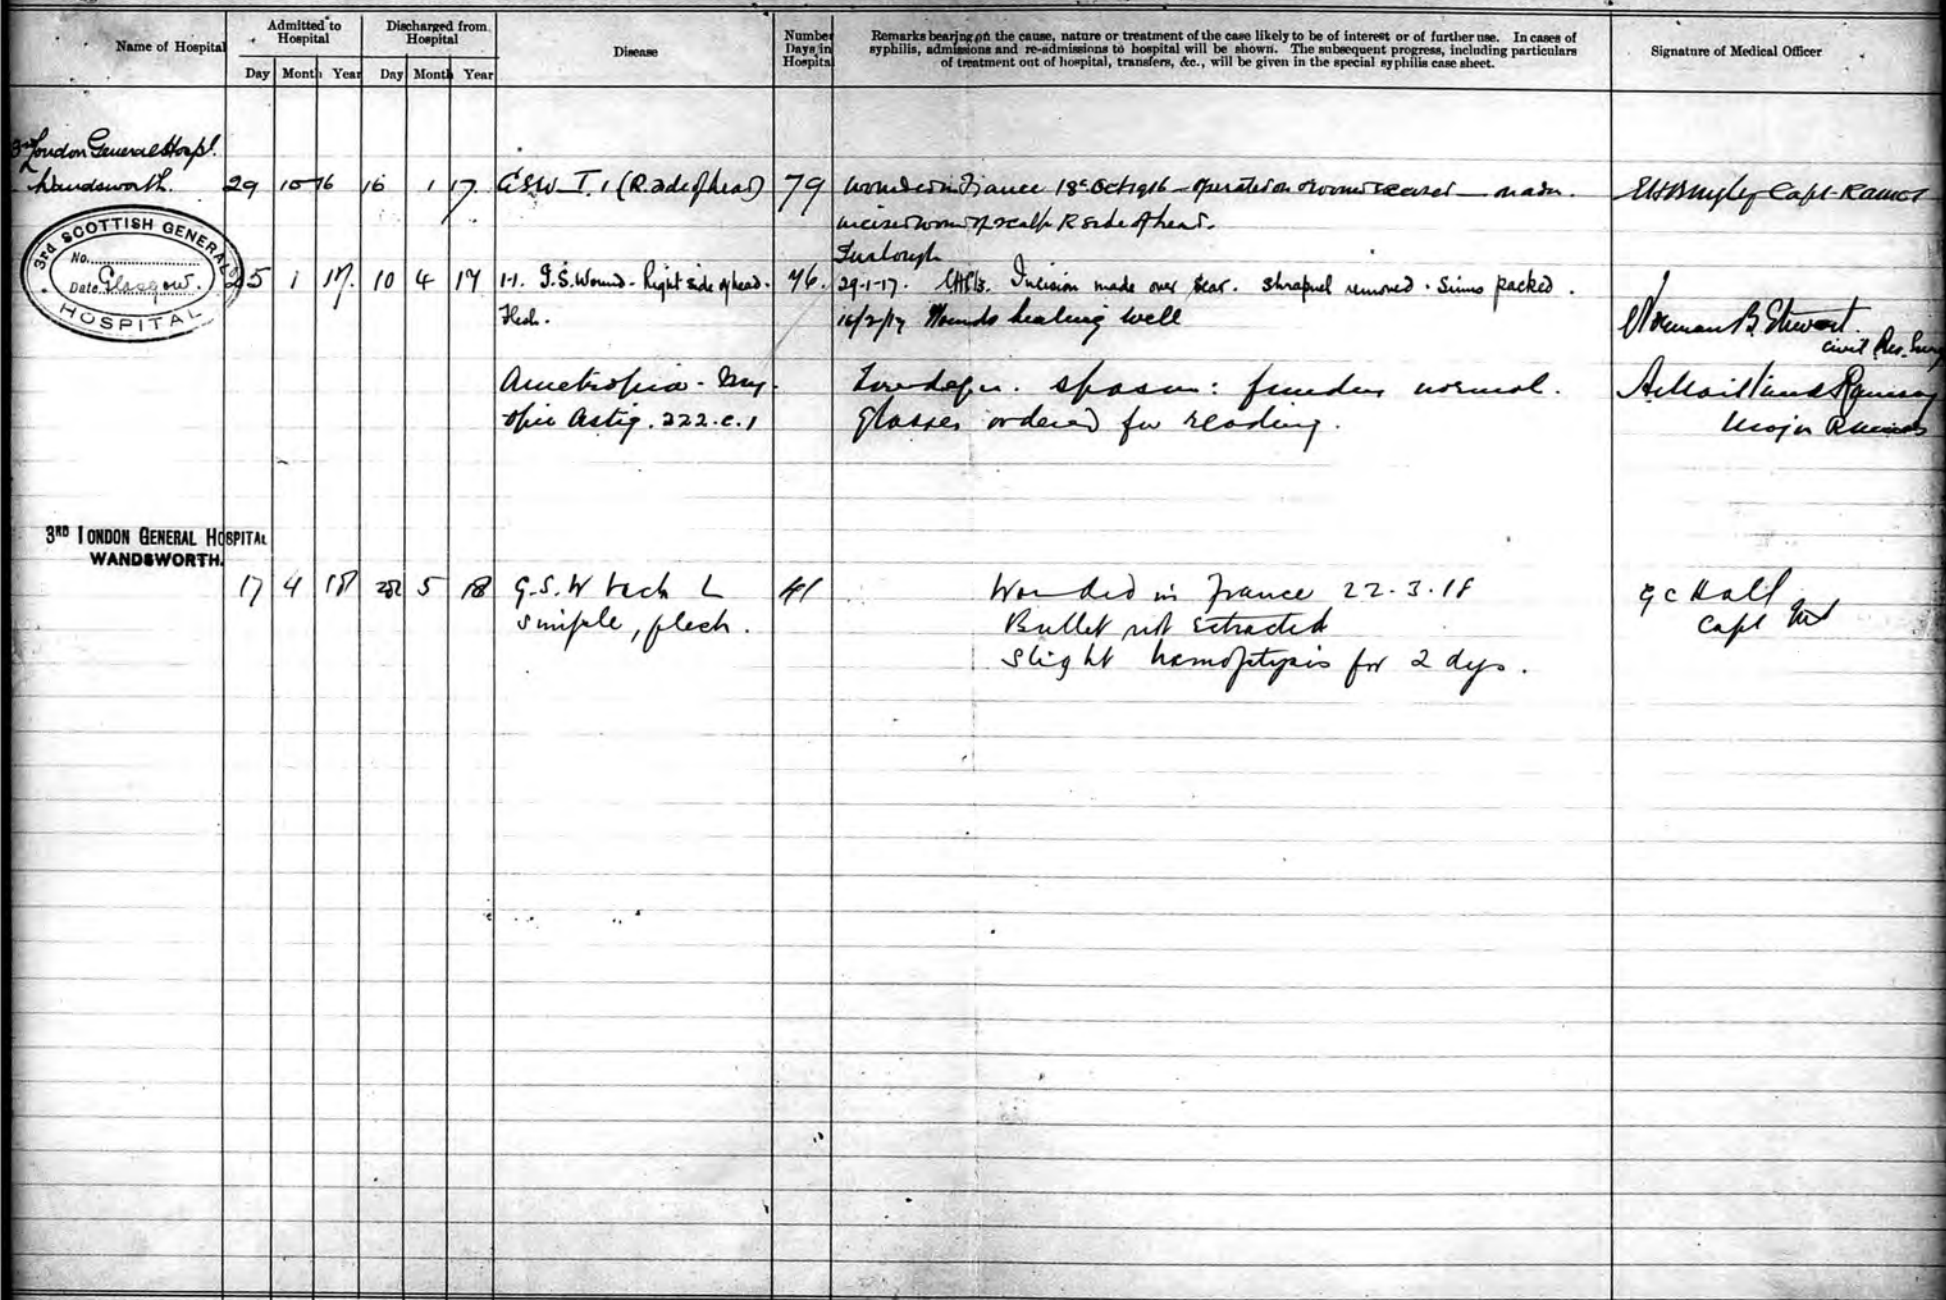 Name of Hospital
Admitted to Hospital
Day Month Year
Discharged from Hospital
Day Month Year
Disease
Number Days in Hospital
Remarks bearing on the cause, nature or treatment of the case likely to be of interest or of further use. In cases of
syphilis, admissions and re-admissions to hospital will be shown. The subsequent progress, including particulars
of treatment out of hospital, transfers, &c., will be given in the special syphilis case sheet.
Signature of Medical Officer
3rd London General Hospl.
Wandsworth. 29 10 16 16 1 17. GSW T. 1 (R. side of head) 79 wounded in France 18 Oct 1916 - operation
incised wound of scalp R side of head.
Furlough
3rd SCOTTISH GENERAL HOSPITAL
No.
Date Glasgow.
25 1 17. 10 4 17 1-1. G.S. Wound - Right side of head. 76. 29-1-17. Incision made over scar. Shrapnel removed. Sinus packed.
Flesh. 16/2/17 Wounds healing well
Norman B. Stewart.
Civil
Ametropia - My-
opic Astig. 222.c.1
spasm: fundus normal.
glasses ordered for reading.
A Maitland Ramsay
Major
3RD LONDON GENERAL HOSPITAL
WANDSWORTH.
17 4 18 28 5 18 G.S.W back L 41 Wounded in France 22.3.18 G C Hall
simple, flesh. Bullet not extracted Capt
Slight hemoptysis for 2 dys.